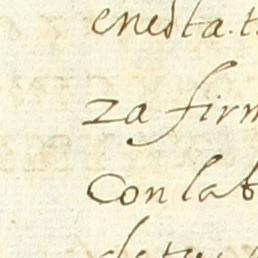 enesta. t
za firm
Con lab